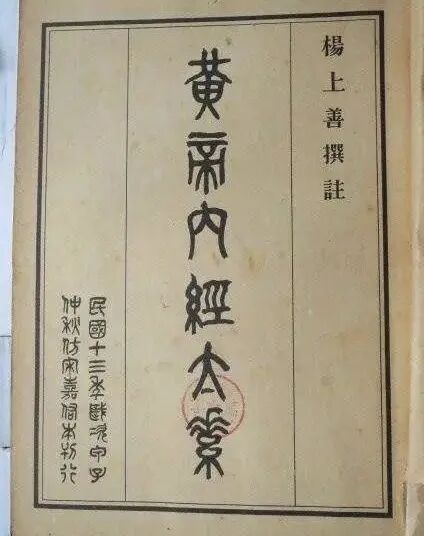 楊上善撰註
黃帝內經太素
民國十三年歲次甲子
仲秋仿宋嘉佑本刊行